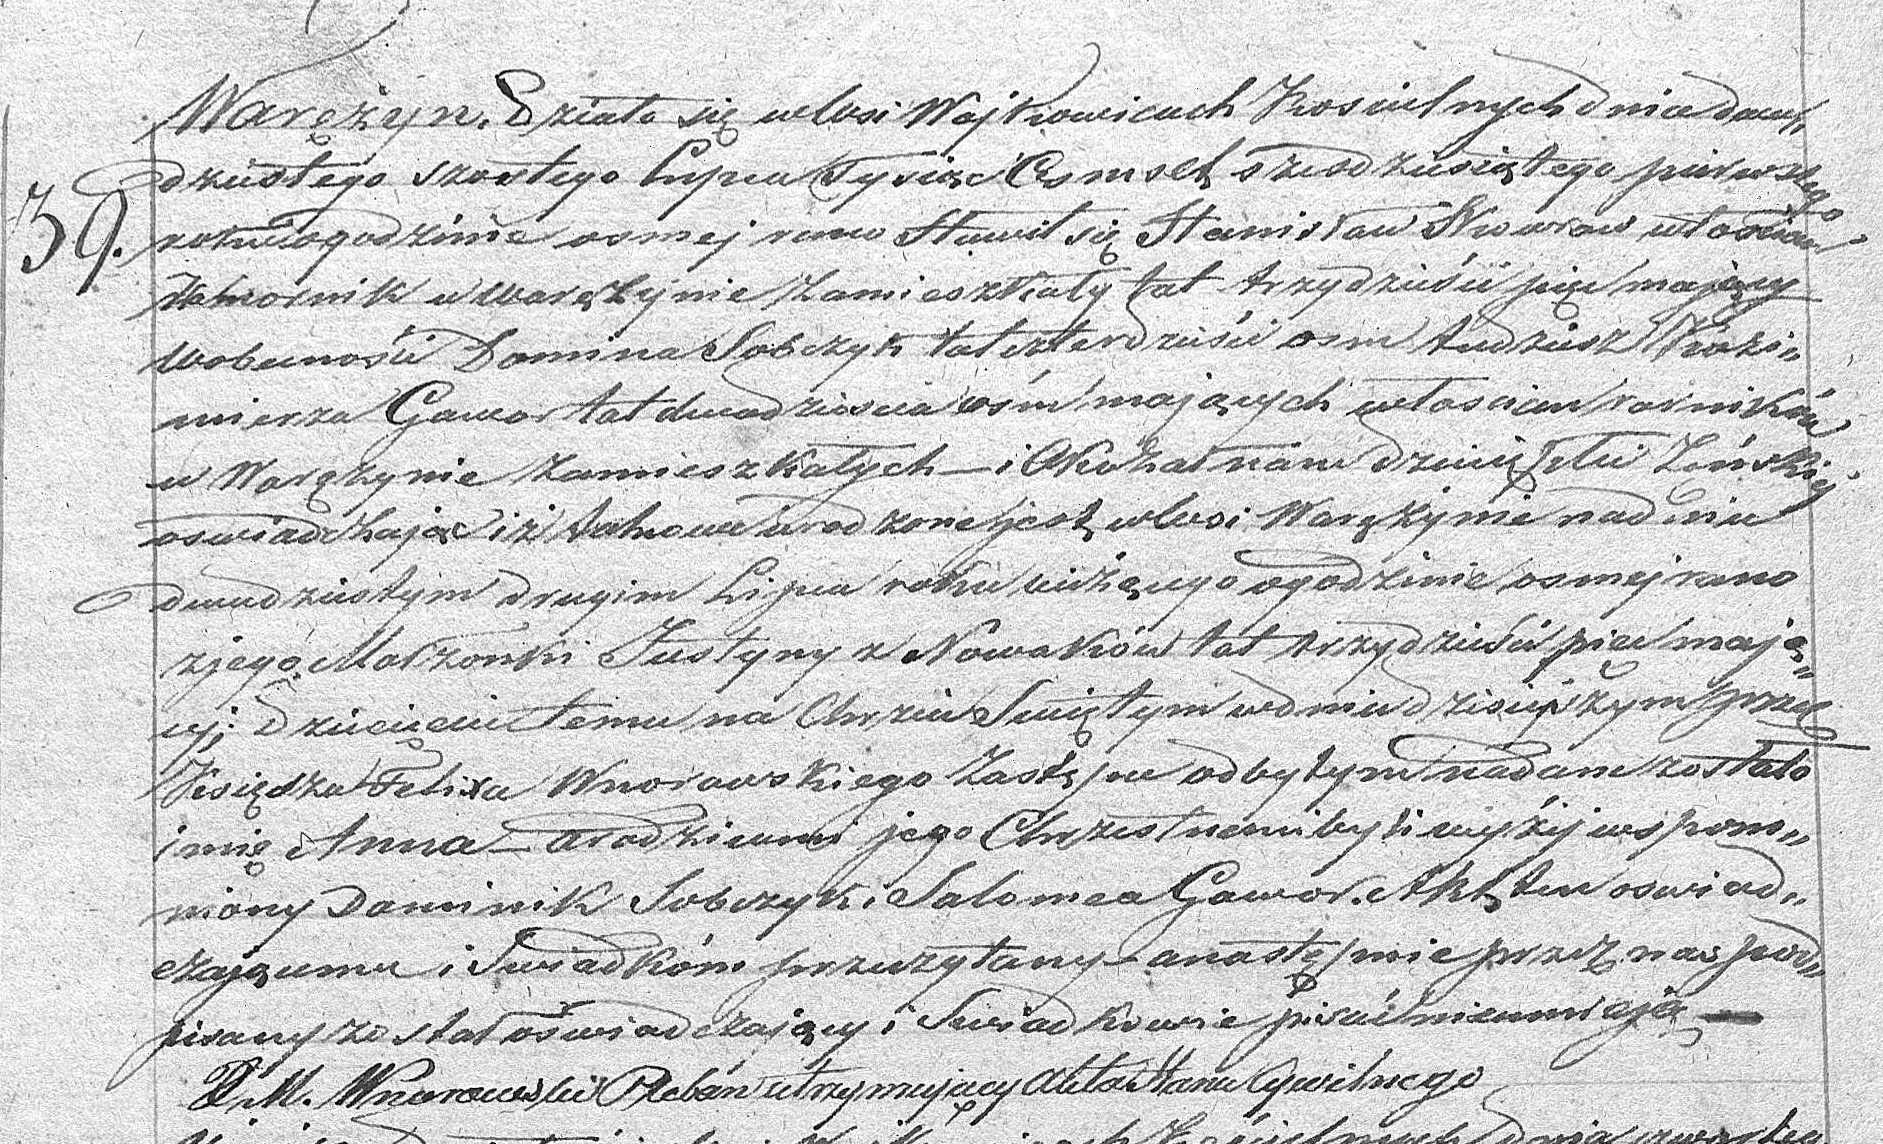 Waręzyn. Działo się w wsi Wojkowicach Kościelnych dnia dwu,,
39. dziestego szostego Lipca Tysiąc Osmset szesdziesiątego pierwszego
roku o godzinie osmej rano Stawił się Stanisław włościan
Komornik w Waręzynie zamieszkały lat trzydzieści pięc mający
w obecności Domina Sobczyk lat czterdzieści osm tudziesz Kazi,,
mierza Gawor lat dwadziescia ośm mających włoscian rolników
w Waręzynie zamieszkałych – i Okozał nam dziecię płci Zeńskiej
oswiadczając iż takowe urodzone jest w wsi Waręzynie na dniu
dwudziestym drugim Lipca roku bieżącego o godzinie osmej rano
z jego Małzonki Justyny z Nowaków lat trzydzieści pięc mają,,
cej; Dziecięciu temu na Chrzcie Swiętym w dniu dzisiejszym przez
Księdza Felixa Wnorowskiego zastępce odbytym nadane zostało
imię Anna – a rodzicami jego Chrzestnemi byli wyżej wspom,,
niony Dominik Sobczyk i Salomea Gawor. Akt ten oswiad,,
czającemu i Swiadkóm przeczytany – a następnie przez nas pod,,
pisany został oświadczający i Swiadkowie pisać nieumieją –
X. M. Wnorowski Pleban utrzymujący Akta Stanu Cywilnego